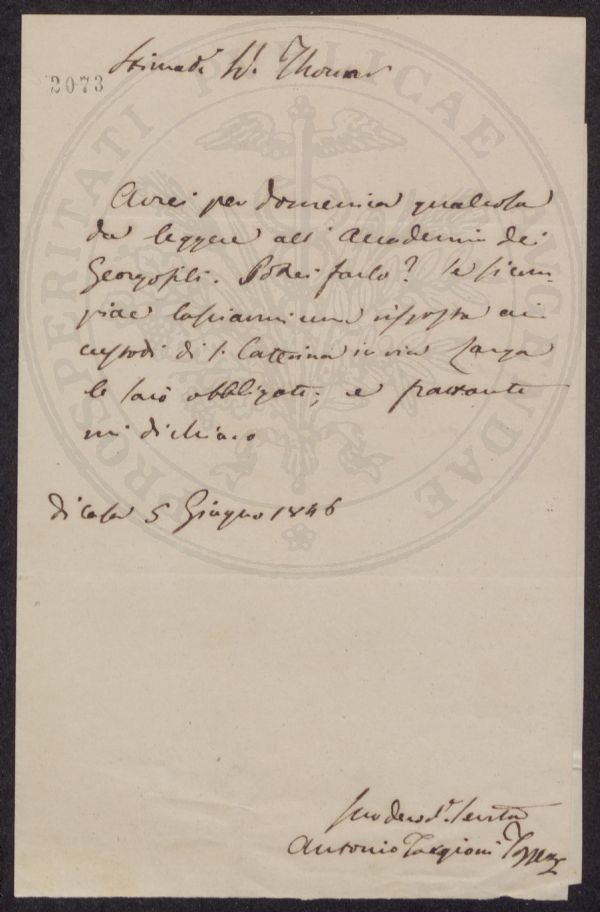 2073
Stimad. Sr. Thouar
Avrei per domenica qualcosa
da leggere all' Accademia dei
Georgofili. Potrei farlo? Se si com-
piace lasciarmi una risposta ai
custodi di S. Caterina in via Larga
le sarò obbligato; e frattanto
mi dichiaro
di casa 5 Giugno 1846
Suo devo.
Antonio Targioni Tozzetti
PROSPERITATI PUBLICAE AUGENDAE